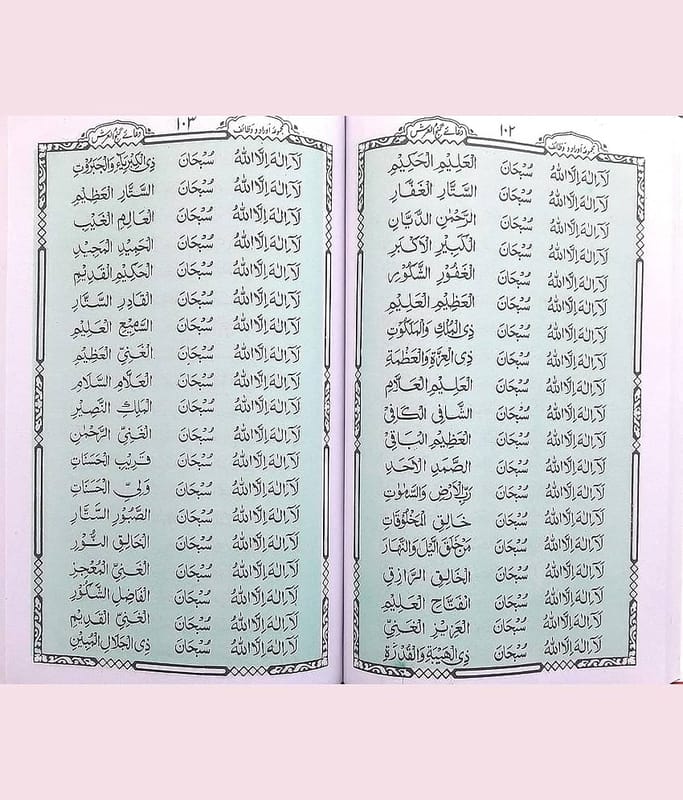 مجموعہ اوراد و وظائف
۱۰۲
دعائے گنج العرش
لَآ اِلٰهَ اِلَّا اللهُ سُبْحَانَ الْعَلِيْمِ الْحَكِيْمِ
لَآ اِلٰهَ اِلَّا اللهُ سُبْحَانَ السَّتَّارِ الْغَفَّارِ
لَآ اِلٰهَ اِلَّا اللهُ سُبْحَانَ الرَّحْمٰنِ الدَّيَّانِ
لَآ اِلٰهَ اِلَّا اللهُ سُبْحَانَ الْكَبِيْرِ الْاَكْبَرِ
لَآ اِلٰهَ اِلَّا اللهُ سُبْحَانَ الْغَفُوْرِ الشَّكُوْرِ
لَآ اِلٰهَ اِلَّا اللهُ سُبْحَانَ الْعَظِيْمِ الْعَلِيْمِ
لَآ اِلٰهَ اِلَّا اللهُ سُبْحَانَ ذِى الْمُلْكِ وَالْمَلَكُوْتِ
لَآ اِلٰهَ اِلَّا اللهُ سُبْحَانَ ذِى الْعِزَّةِ وَالْعَظَمَةِ
لَآ اِلٰهَ اِلَّا اللهُ سُبْحَانَ الْعَلِيْمِ الْعَلَّامِ
لَآ اِلٰهَ اِلَّا اللهُ سُبْحَانَ الشَّافِى الْكَافِىْ
لَآ اِلٰهَ اِلَّا اللهُ سُبْحَانَ الْعَظِيْمِ الْبَاقِىْ
لَآ اِلٰهَ اِلَّا اللهُ سُبْحَانَ الصَّمَدِ الْاَحَدِ
لَآ اِلٰهَ اِلَّا اللهُ سُبْحَانَ رَبِّ الْاَرْضِ وَالسَّمٰوٰتِ
لَآ اِلٰهَ اِلَّا اللهُ سُبْحَانَ خَالِقِ الْمَخْلُوْقَاتِ
لَآ اِلٰهَ اِلَّا اللهُ سُبْحَانَ مَنْ خَلَقَ الَّيْلَ وَالنَّهَارَ
لَآ اِلٰهَ اِلَّا اللهُ سُبْحَانَ الْخَالِقِ الرَّازِقِ
لَآ اِلٰهَ اِلَّا اللهُ سُبْحَانَ الْفَتَّاحِ الْعَلِيْمِ
لَآ اِلٰهَ اِلَّا اللهُ سُبْحَانَ الْعَزِيْزِ الْغَنِيِّ
لَآ اِلٰهَ اِلَّا اللهُ سُبْحَانَ ذِى الْهَيْبَةِ وَالْقُدْرَةِ
مجموعہ اوراد و وظائف
۱۰۳
دعائے گنج العرش
لَآ اِلٰهَ اِلَّا اللهُ سُبْحَانَ ذِى الْكِبْرِيَآءِ وَالْجَبَرُوْتِ
لَآ اِلٰهَ اِلَّا اللهُ سُبْحَانَ السَّتَّارِ الْعَظِيْمِ
لَآ اِلٰهَ اِلَّا اللهُ سُبْحَانَ الْعَالِمِ الْغَيْبِ
لَآ اِلٰهَ اِلَّا اللهُ سُبْحَانَ الْحَمِيْدِ الْمَجِيْدِ
لَآ اِلٰهَ اِلَّا اللهُ سُبْحَانَ الْحَكِيْمِ الْقَدِيْمِ
لَآ اِلٰهَ اِلَّا اللهُ سُبْحَانَ الْقَادِرِ السَّتَّارِ
لَآ اِلٰهَ اِلَّا اللهُ سُبْحَانَ السَّمِيْعِ الْعَلِيْمِ
لَآ اِلٰهَ اِلَّا اللهُ سُبْحَانَ الْغَنِيِّ الْعَظِيْمِ
لَآ اِلٰهَ اِلَّا اللهُ سُبْحَانَ الْعَلَّامِ السَّلَامِ
لَآ اِلٰهَ اِلَّا اللهُ سُبْحَانَ الْمَلِكِ النَّصِيْرِ
لَآ اِلٰهَ اِلَّا اللهُ سُبْحَانَ الْغَنِيِّ الرَّحْمٰنِ
لَآ اِلٰهَ اِلَّا اللهُ سُبْحَانَ قَرِيْبِ الْحَسَنَاتِ
لَآ اِلٰهَ اِلَّا اللهُ سُبْحَانَ وَلِيِّ الْحَسَنَاتِ
لَآ اِلٰهَ اِلَّا اللهُ سُبْحَانَ الصَّبُوْرِ السَّتَّارِ
لَآ اِلٰهَ اِلَّا اللهُ سُبْحَانَ الْخَالِقِ النُّوْرِ
لَآ اِلٰهَ اِلَّا اللهُ سُبْحَانَ الْغَنِيِّ الْمُعْجِزِ
لَآ اِلٰهَ اِلَّا اللهُ سُبْحَانَ الْفَاضِلِ الشَّكُوْرِ
لَآ اِلٰهَ اِلَّا اللهُ سُبْحَانَ الْغَنِيِّ الْقَدِيْمِ
لَآ اِلٰهَ اِلَّا اللهُ سُبْحَانَ ذِى الْجَلَالِ الْمُبِيْنِ